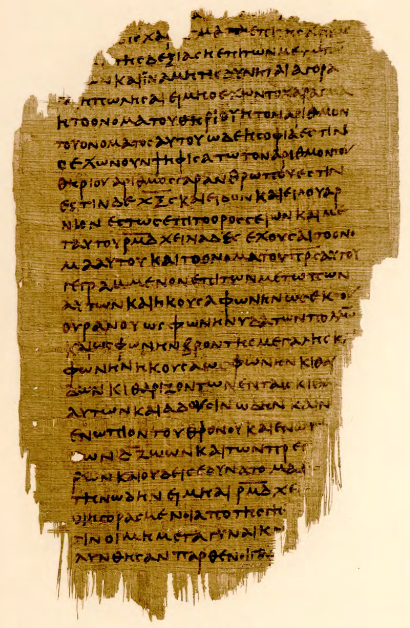 χαραγμα επι της χειρος
της δεξιας η επι των μετωπ
ων και ϊνα μη τις δυνηται αγορα
η πωλησαι ει μη ο εχων το χαραγμα
η το ονομα του θηριου η τον αριθμον
του ονοματος αυτου ωδε η σοφια εστιν
ο εχων ουν ψηφισατω τον αριθμον του
θηριου αριθμος γαρ ανθρωπου εστιν
εστιν δε χξϛ και ειδον και ειδου αρ
νιον εστως επι το ορος σειων και με
τ αυτου ρμδ χειλιαδες εχουσαι το ονο
μα αυτου και το ονομα του πρς αυτου
γεγραμμενον επι των μετωπων
αυτων και ηκουσα φωνην ως εκ του
ουρανου ως φωνην υδατων πολλω
και ως φωνην βροντης μεγαλης κ
φωνην ηκουσα ως φωνην κιθα
δων κιθαριζοντων εν ταις κιθα
αυτων και αδουσιν ωδην καιν
ενωπιον του θρονου και ενωπ
των δ ζωων και των πρεσ
ρων και ουδεις εδυνατο μαθ
την ωδην ει μη αι ρμδ χε
οι ηγορασμενοι απο της γης
τινοι μη μετα γυναικ
λυνθησαν παρθενοι